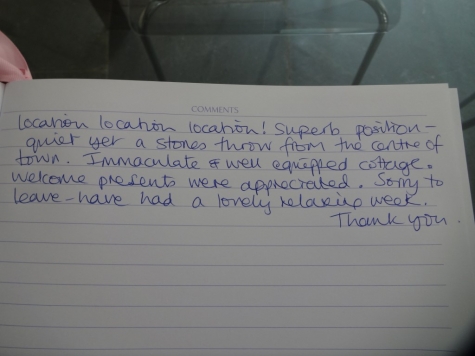 COMMENTS
location location location! Superb position -
quiet yet a stones throw from the centre of
town. Immaculate & well equipped cottage.
Welcome presents were appreciated. Sorry to
leave - have had a lovely relaxing week.
Thank you.